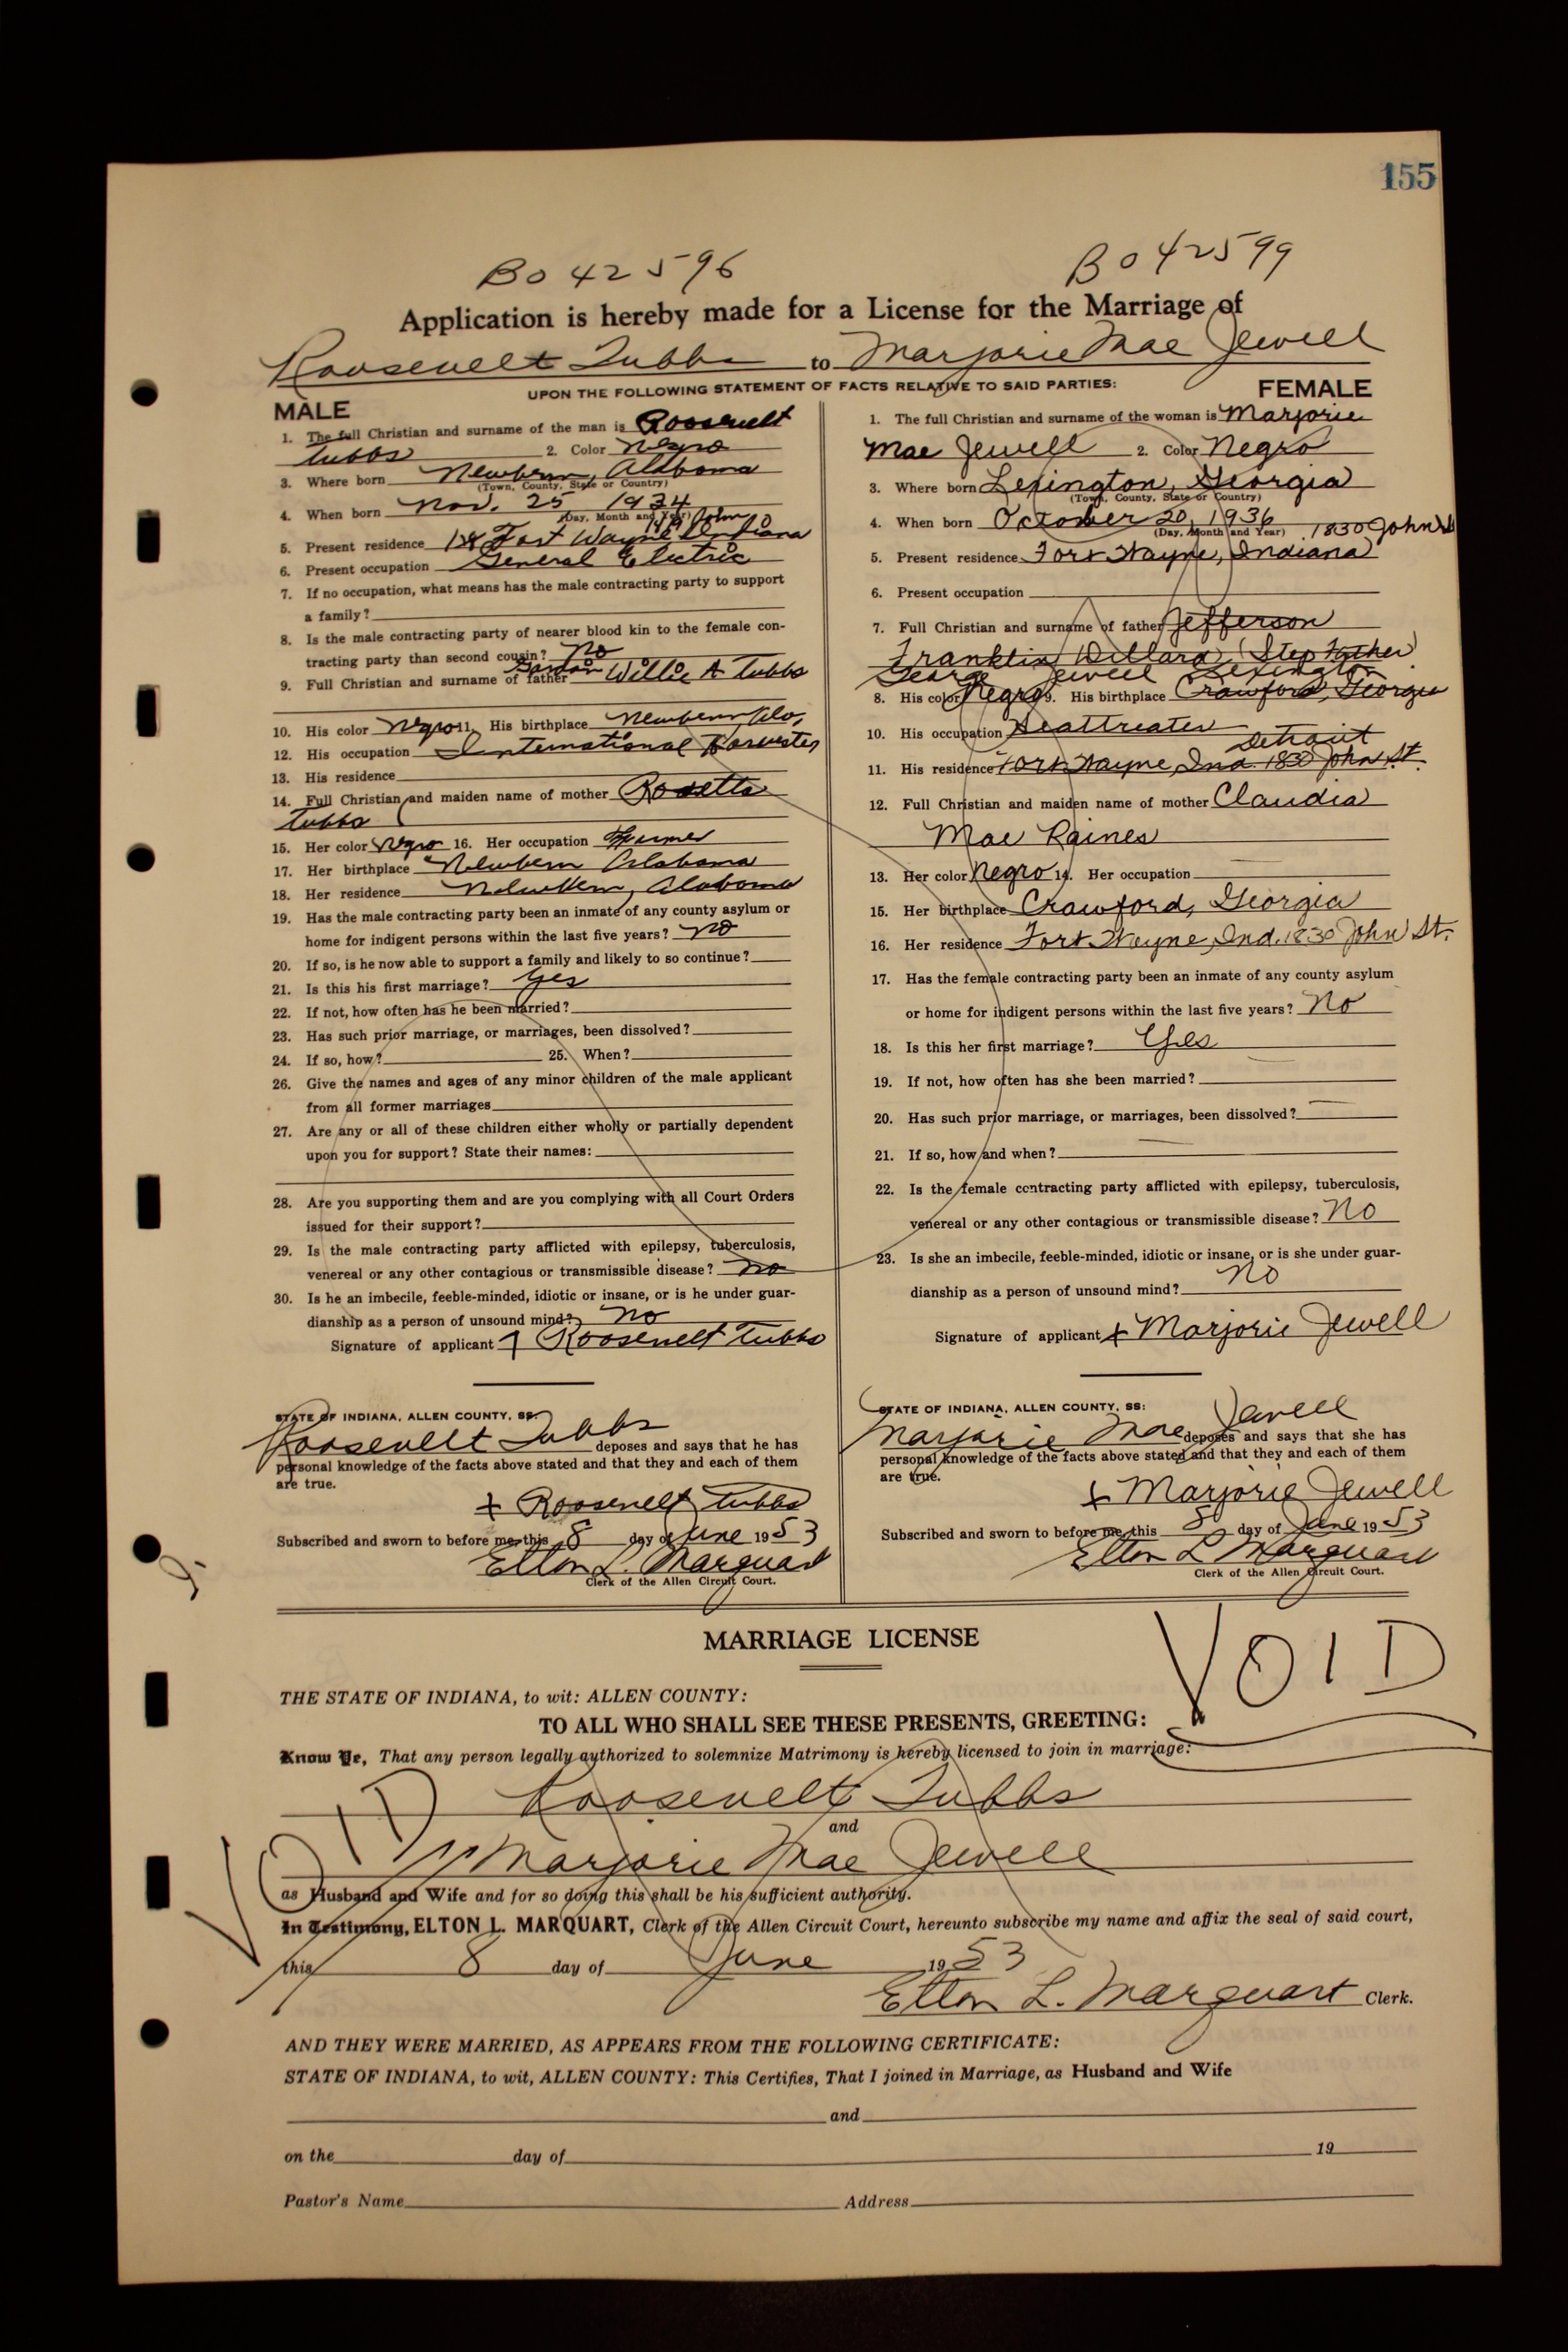 155
B042596 B042599
Application is hereby made for a License for the Marriage of
Roosevelt Tubbs to Marjorie Mae Jewell
UPON THE FOLLOWING STATEMENT OF FACTS RELATIVE TO SAID PARTIES:
MALE
1. The full Christian and surname of the man is Roosevelt
Tubbs 2. Color Negro
3. Where born Newbern, Alabama
(Town, County, State or Country)
4. When born Nov. 25 1934
(Day, Month and Year) John
5. Present residence Fort Wayne Indiana
6. Present occupation General Electric
7. If no occupation, what means has the male contracting party to support
a family?
8. Is the male contracting party of nearer blood kin to the female con-
tracting party than second cousin? No
9. Full Christian and surname of father Willie A Tubbs
10. His color Negro 11. His birthplace Newbern Ala,
12. His occupation International Harvester
13. His residence
14. Full Christian and maiden name of mother Rosetta
Tubbs
15. Her color Negro 16. Her occupation
17. Her birthplace Newbern Alabama
18. Her residence Newbern, Alabama
19. Has the male contracting party been an inmate of any county asylum or
home for indigent persons within the last five years? no
20. If so, is he now able to support a family and likely to so continue?
21. Is this his first marriage? yes
22. If not, how often has he been married?
23. Has such prior marriage, or marriages, been dissolved?
24. If so, how? 25. When?
26. Give the names and ages of any minor children of the male applicant
from all former marriages
27. Are any or all of these children either wholly or partially dependent
upon you for support? State their names:
28. Are you supporting them and are you complying with all Court Orders
issued for their support?
29. Is the male contracting party afflicted with epilepsy, tuberculosis,
venereal or any other contagious or transmissible disease? no
30. Is he an imbecile, feeble-minded, idiotic or insane, or is he under guar-
dianship as a person of unsound mind? no
Signature of applicant Roosevelt Tubbs
STATE OF INDIANA, ALLEN COUNTY, SS:
Roosevelt Tubbs deposes and says that he has
personal knowledge of the facts above stated and that they and each of them
are true.
x Roosevelt Tubbs
Subscribed and sworn to before me, this 8 day of June 1953
Elton L. Marquart
Clerk of the Allen Circuit Court.
FEMALE
1. The full Christian and surname of the woman is Marjorie
Mae Jewell 2. Color Negro
3. Where born Lexington, Georgia
(Town, County, State or Country)
4. When born October 20, 1936
(Day, Month and Year) 1830 John St
5. Present residence Fort Wayne, Indiana
6. Present occupation
7. Full Christian and surname of father Jefferson
Franklin Willard (Step Father)
George Jewell Lexington
8. His color Negro 9. His birthplace Crawford, Georgia
10. His occupation Heattreater
Detroit
11. His residence Fort Wayne, Ind. 1830 John St.
12. Full Christian and maiden name of mother Claudia
Mae Raines
13. Her color Negro 14. Her occupation
15. Her birthplace Crawford, Georgia
16. Her residence Fort Wayne, Ind. 1830 John St.
17. Has the female contracting party been an inmate of any county asylum
or home for indigent persons within the last five years? No
18. Is this her first marriage? Yes
19. If not, how often has she been married?
20. Has such prior marriage, or marriages, been dissolved?
21. If so, how and when?
22. Is the female contracting party afflicted with epilepsy, tuberculosis,
venereal or any other contagious or transmissible disease? No
23. Is she an imbecile, feeble-minded, idiotic or insane, or is she under guar-
dianship as a person of unsound mind? No
Signature of applicant x Marjorie Jewell
STATE OF INDIANA, ALLEN COUNTY, SS:
Marjorie Mae Jewell deposes and says that she has
personal knowledge of the facts above stated and that they and each of them
are true.
x Marjorie Jewell
Subscribed and sworn to before me, this 8 day of June 1953
Elton L Marquart
Clerk of the Allen Circuit Court.
MARRIAGE LICENSE
VOID
THE STATE OF INDIANA, to wit: ALLEN COUNTY:
TO ALL WHO SHALL SEE THESE PRESENTS, GREETING:
Know Ye, That any person legally authorized to solemnize Matrimony is hereby licensed to join in marriage:
Roosevelt Tubbs
and
VOID
Marjorie Mae Jewell
as Husband and Wife and for so doing this shall be his sufficient authority.
In Testimony, ELTON L. MARQUART, Clerk of the Allen Circuit Court, hereunto subscribe my name and affix the seal of said court,
this 8 day of June 1953
Elton L. Marquart Clerk.
AND THEY WERE MARRIED, AS APPEARS FROM THE FOLLOWING CERTIFICATE:
STATE OF INDIANA, to wit, ALLEN COUNTY: This Certifies, That I joined in Marriage, as Husband and Wife
and
on the day of 19
Pastor's Name Address